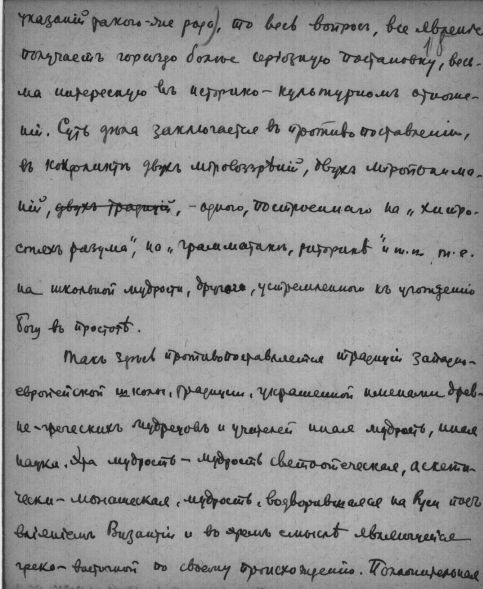 указаній такого-же рода), то весь вопросъ, все явленіе
получаетъ гораздо болѣе серьезную постановку, весь-
ма интересную въ историко-культурномъ отноше-
ніи. Суть дѣла заключается въ противопоставленіи,
въ конфликтѣ двухъ міровоззрѣній, двухъ міропонима-
ній, двухъ традицій, - одного, построеннаго на „хитро-
стяхъ разума", на „грамматикѣ, риторикѣ" и т.п. т.е.
на школьной мудрости, другого, устремленнаго къ угожденію
Богу въ простотѣ.
Такъ здѣсь противопоставляется традиціи западно-
европейской школы, традиціи, украшенной именами древ-
не-греческихъ мудрецовъ и учителей иная мудрость, иная
наука. Эта мудрость - мудрость святоотеческая, аскети-
чески-монашеская, мудрость, водворившаяся на Руси подъ
вліяніемъ Византіи и въ этомъ смыслѣ являющаяся
греко-восточной по своему происхожденію. Положительная